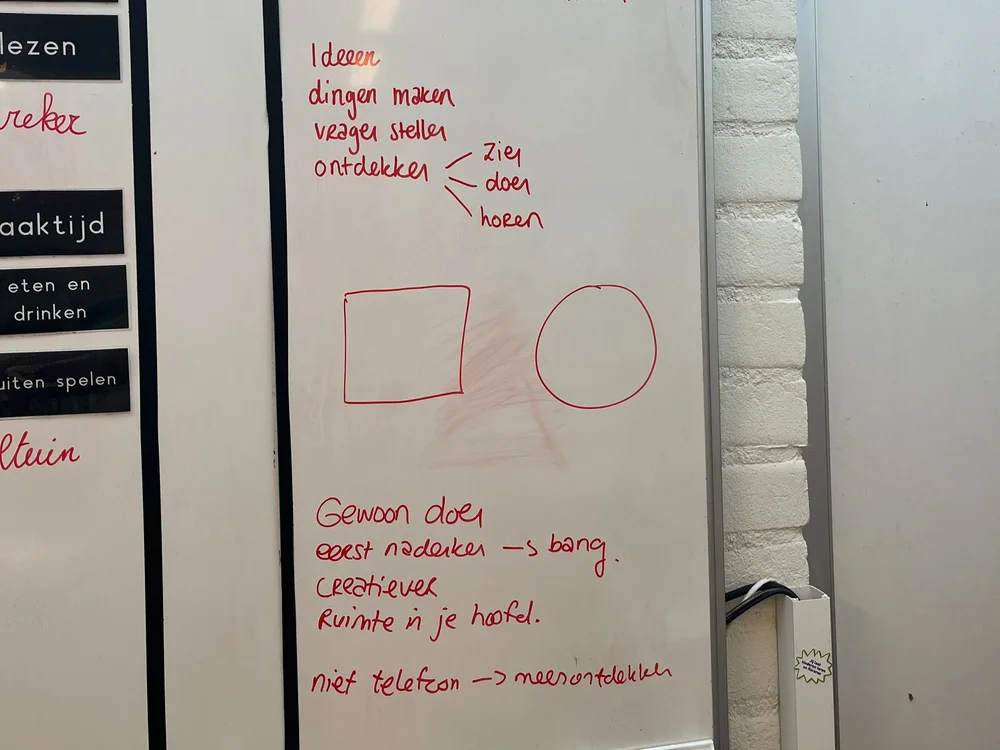 lezen
reker
aaktijd
eten en
drinken
uiten spelen
ltuin
Ideeen
dingen maken
vragen stellen
ontdekken
zien
doen
horen
Gewoon doen
eerst nadenken → bang.
creatiever
Ruimte in je hoofd.
niet telefoon → meer ontdekken